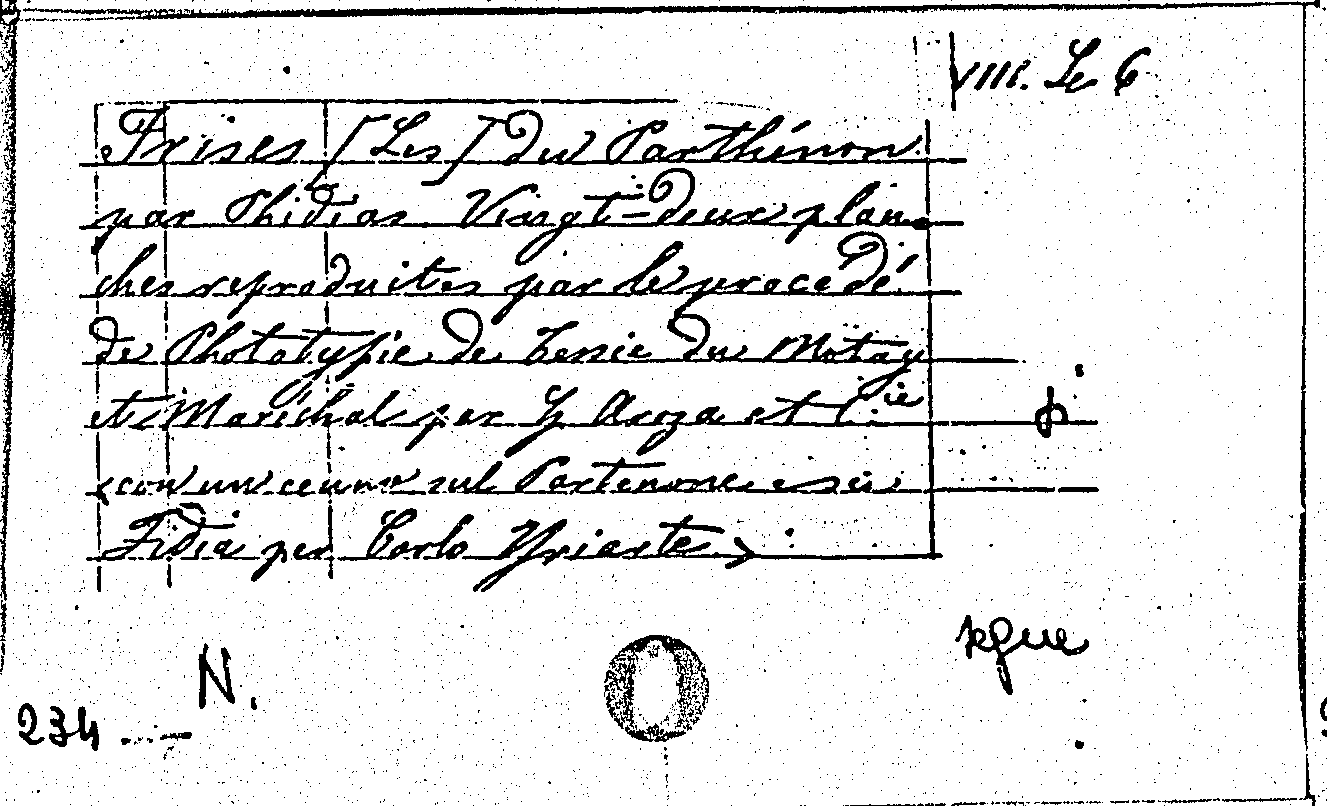 VIII. Le 6
Frises [Les] du Parthénon
par Phidias. Vingt-deux plan-
ches reproduites par le procédé
de Phototypie de Tessie du Motay
et Maréchal par G. Arosa et C.ie
(con un cenno sul Partenone e su
Fidia per Carlo Yriarte)
segue
N.
234